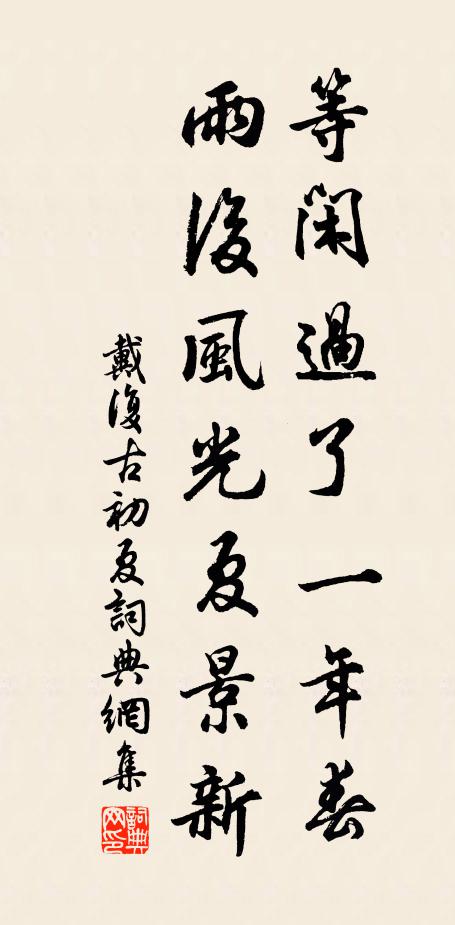 等閑過了一年春
雨後風光夏景新
戴復古初夏詞典網集
詞典網印